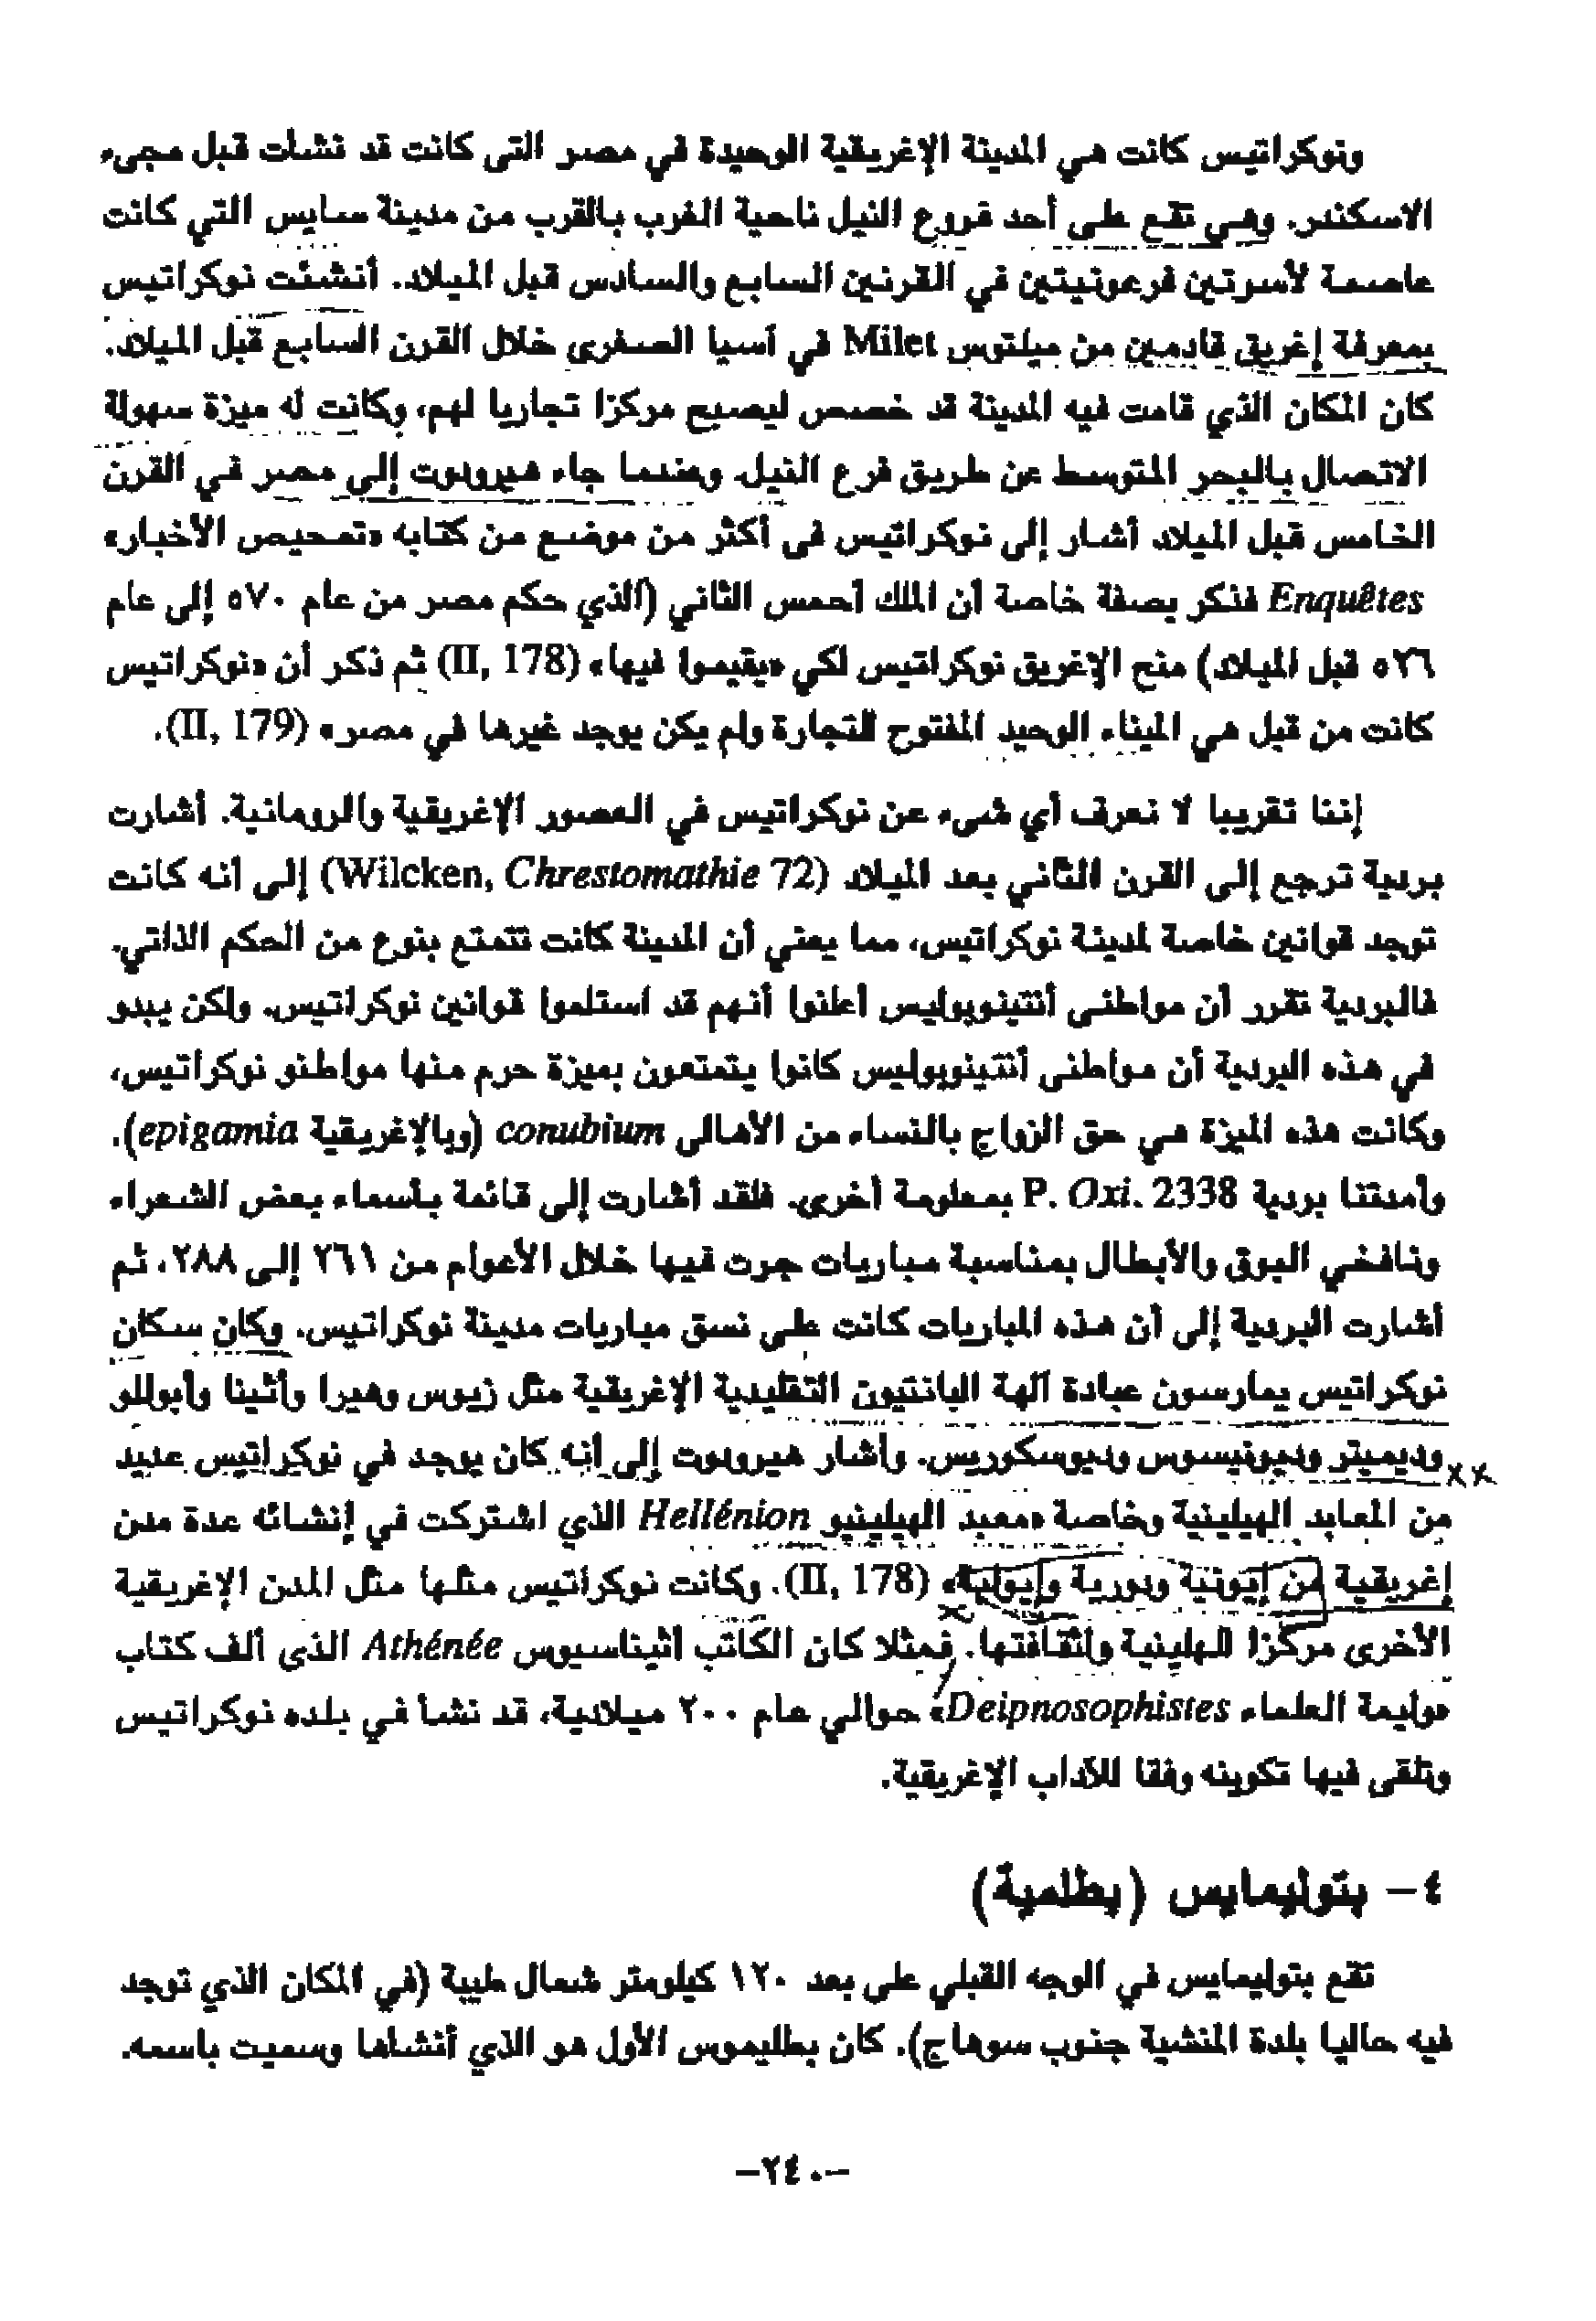 ونوكراتيس كانت هي المدينة الإغريقية الوحيدة في مصر التى كانت قد نشأت قبل مجىء
الاسكندر. وهي تقع على أحد فروع النيل ناحية الغرب بالقرب من مدينة سايس التي كانت
عاصمة لأسرتين فرعونيتين في القرنين السابع والسادس قبل الميلاد.. أنشئت نوكراتيس
بمعرفة إغريق قادمين من ميلتوس Milet في آسيا الصغرى خلال القرن السابع قبل الميلاد.
كان المكان الذي قامت فيه المدينة قد خصص ليصبح مركزا تجاريا لهم، وكانت له ميزة سهولة
الاتصال بالبحر المتوسط عن طريق فرع النيل. وعندما جاء هيرودوت إلى مصر في القرن
الخامس قبل الميلاد أشار إلى نوكراتيس فى أكثر من موضع من كتابه «تمحيص الأخبار»
Enquêtes فذكر بصفة خاصة أن الملك أحمس الثاني (الذي حكم مصر من عام ٥٧٠ إلى عام
٥٢٦ قبل الميلاد) منح الإغريق نوكراتيس لكي «يقيموا فيها» (II, 178) ثم ذكر أن «نوكراتيس
كانت من قبل هي الميناء الوحيد المفتوح للتجارة ولم يكن يوجد غيرها في مصر» (II, 179).
إننا تقريبا لا نعرف أي شىء عن نوكراتيس في العصور الإغريقية والرومانية. أشارت
بردية ترجع إلى القرن الثاني بعد الميلاد (Wilcken, Chrestomathie 72) إلى أنه كانت
توجد قوانين خاصة لمدينة نوكراتيس، مما يعني أن المدينة كانت تتمتع بنوع من الحكم الذاتي.
فالبردية تقرر أن مواطنى أنتينوبوليس أعلنوا أنهم قد استلموا قوانين نوكراتيس. ولكن يبدو
في هذه البردية أن مواطنى أنتينوبوليس كانوا يتمتعون بميزة حرم منها مواطنو نوكراتيس،
وكانت هذه الميزة هي حق الزواج بالنساء من الأهالى conubium (وبالإغريقية epigamia).
وأمدتنا بردية P. Oxi. 2338 بمعلومة أخرى. فلقد أشارت إلى قائمة بأسماء بعض الشعراء
ونافخي البوق والأبطال بمناسبة مباريات جرت فيها خلال الأعوام من ٢٦١ إلى ٢٨٨، ثم
أشارت البردية إلى أن هذه المباريات كانت على نسق مباريات مدينة نوكراتيس. وكان سكان
نوكراتيس يمارسون عبادة آلهة البانتيون التقليدية الإغريقية مثل زيوس وهيرا وأثينا وأبوللو
وديميتر وديونيسوس وديوسكوريس. وأشار هيرودوت إلى أنه كان يوجد في نوكراتيس عديد
من المعابد الهيلينية وخاصة «معبد الهيلينيو Hellénion الذي اشتركت في إنشائه عدة مدن
إغريقية من إيونية ودورية وإيولية» (II, 178). وكانت نوكراتيس مثلها مثل المدن الإغريقية
الأخرى مركزا للهلينية ولثقافتها. فمثلا كان الكاتب أثيناسيوس Athénée الذى ألف كتاب
«وليمة العلماء Deipnosophistes» حوالي عام ٢٠٠ ميلادية، قد نشأ في بلده نوكراتيس
وتلقى فيها تكوينه وفقا للآداب الإغريقية.
٤- بتوليمايس (بطلمية)
تقع بتوليمايس في الوجه القبلي على بعد ١٢٠ كيلومتر شمال طيبة (في المكان الذي توجد
فيه حاليا بلدة المنشية جنوب سوهاج). كان بطليموس الأول هو الذي أنشأها وسميت باسمه.
-٢٤٠-